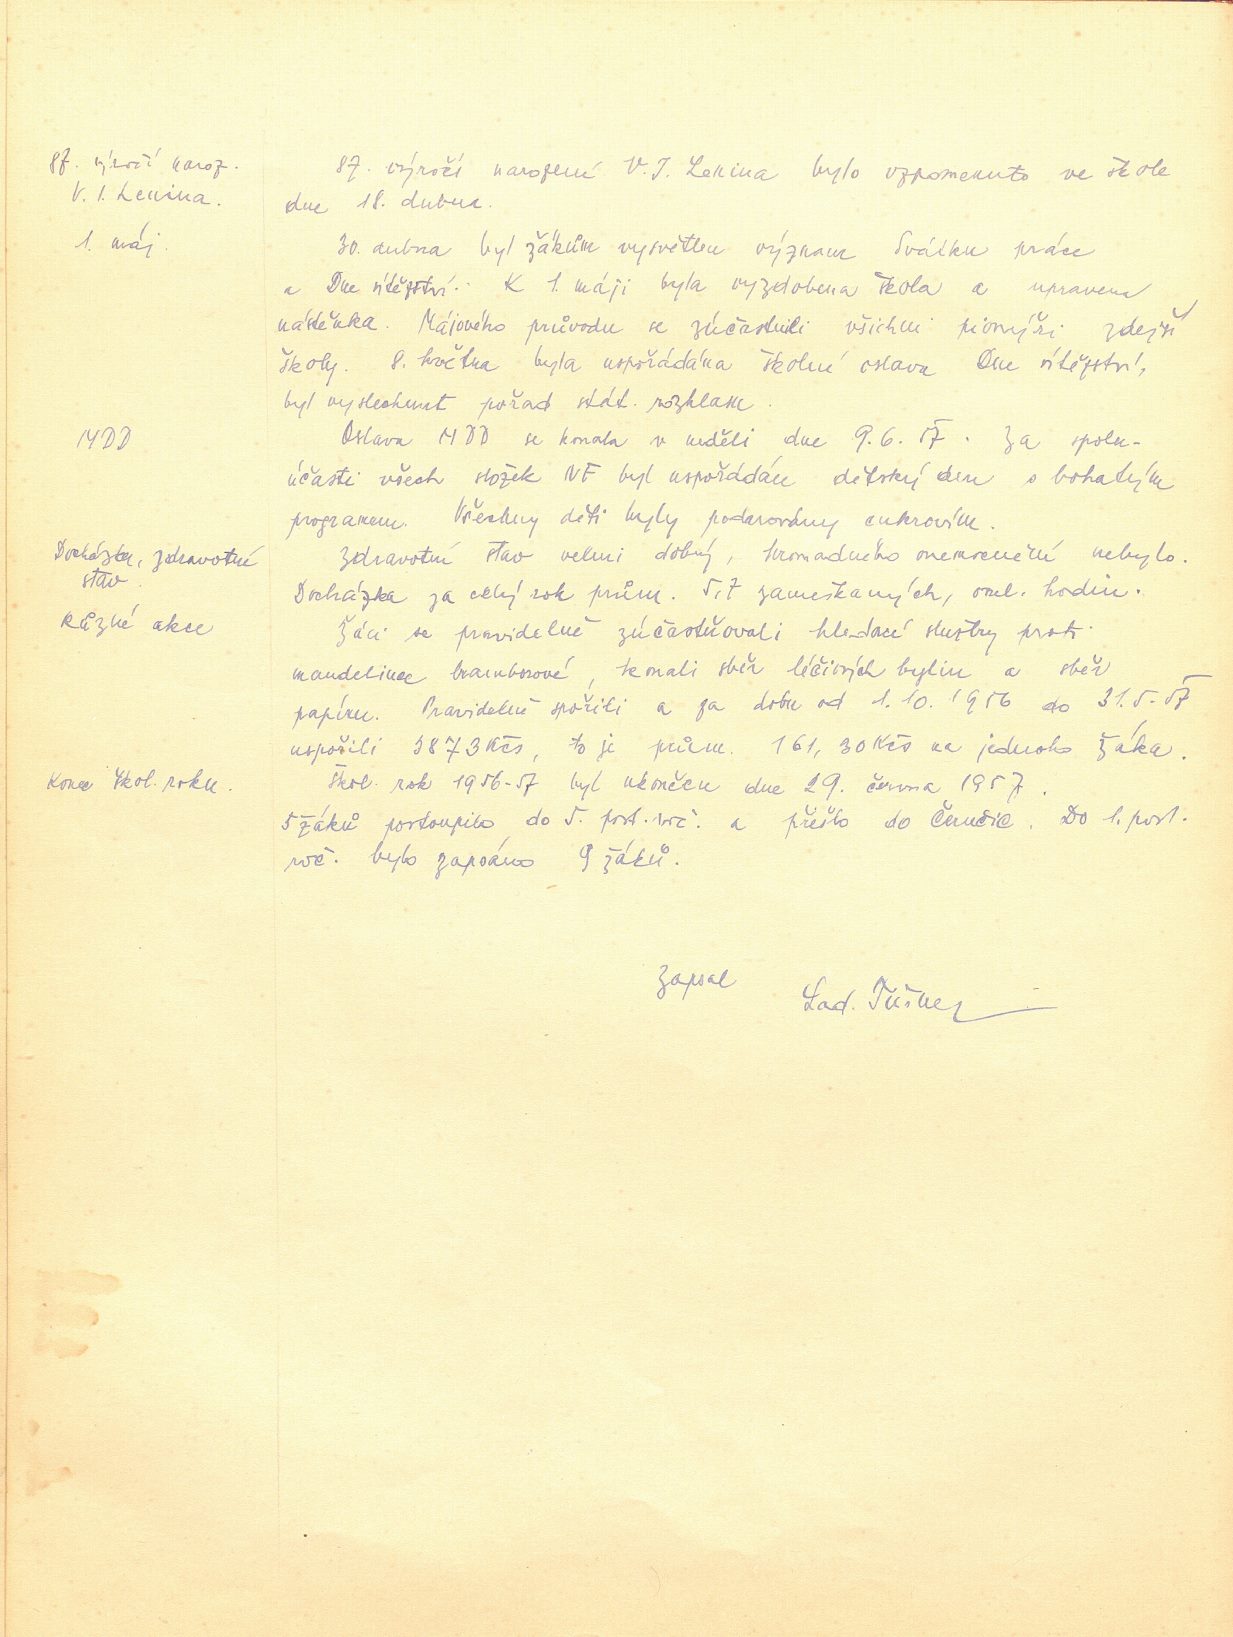 87. výročí naroz.
V. I. Lenina.
87. výročí narození V. I. Lenina bylo vzpomenuto ve škole
dne 18. dubna.
1. máj.
30. dubna byl žákům vysvětlen význam Svátku práce
a Dne vítězství. K 1. máji byla vyzdobena škola a upravena
nástěnka. Májového průvodu se zúčastnili všichni pionýři zdejší
školy. 8. května byla uspořádána školní oslava Dne vítězství,
byl vyslechnut pořad stát. rozhlasu.
MDD
Oslava MDD se konala v neděli dne 9. 6. 57. Za spolu-
účasti všech složek NF byl uspořádán dětský den s bohatým
programem. Všechny děti byly podarovány cukrovím.
Docházka, zdravotní
stav.
Zdravotní stav velmi dobrý, hromadného onemocnění nebylo.
Docházka za celý rok prům. 5,7 zameškaných, oml. hodin.
Různé akce
Žáci se pravidelně zúčastňovali hledací služby proti
mandelince bramborové, konali sběr léčivých bylin a sběr
papíru. Pravidelně spořili a za dobu od 1. 10. 1956 do 31. 5. 57
uspořili 3873 Kčs, to je prům. 161,30 Kčs na jednoho žáka.
Konec škol. roku.
Škol. rok 1956-57 byl ukončen dne 29. června 1957.
5 žáků postoupilo do 5. post. roč. a přešlo do Černčic. Do 1. post.
roč. bylo zapsáno 9 žáků.
Zapsal
Lad.